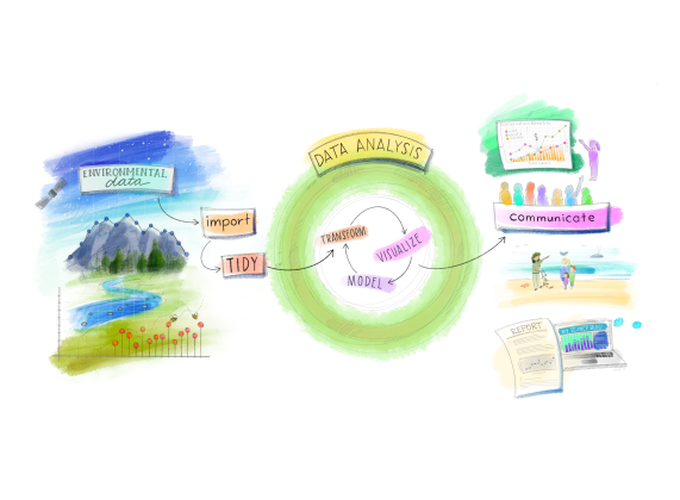 ENVIRONMENTAL
data
import
TIDY
DATA ANALYSIS
TRANSFORM
VISUALIZE
MODEL
communicate
REPORT